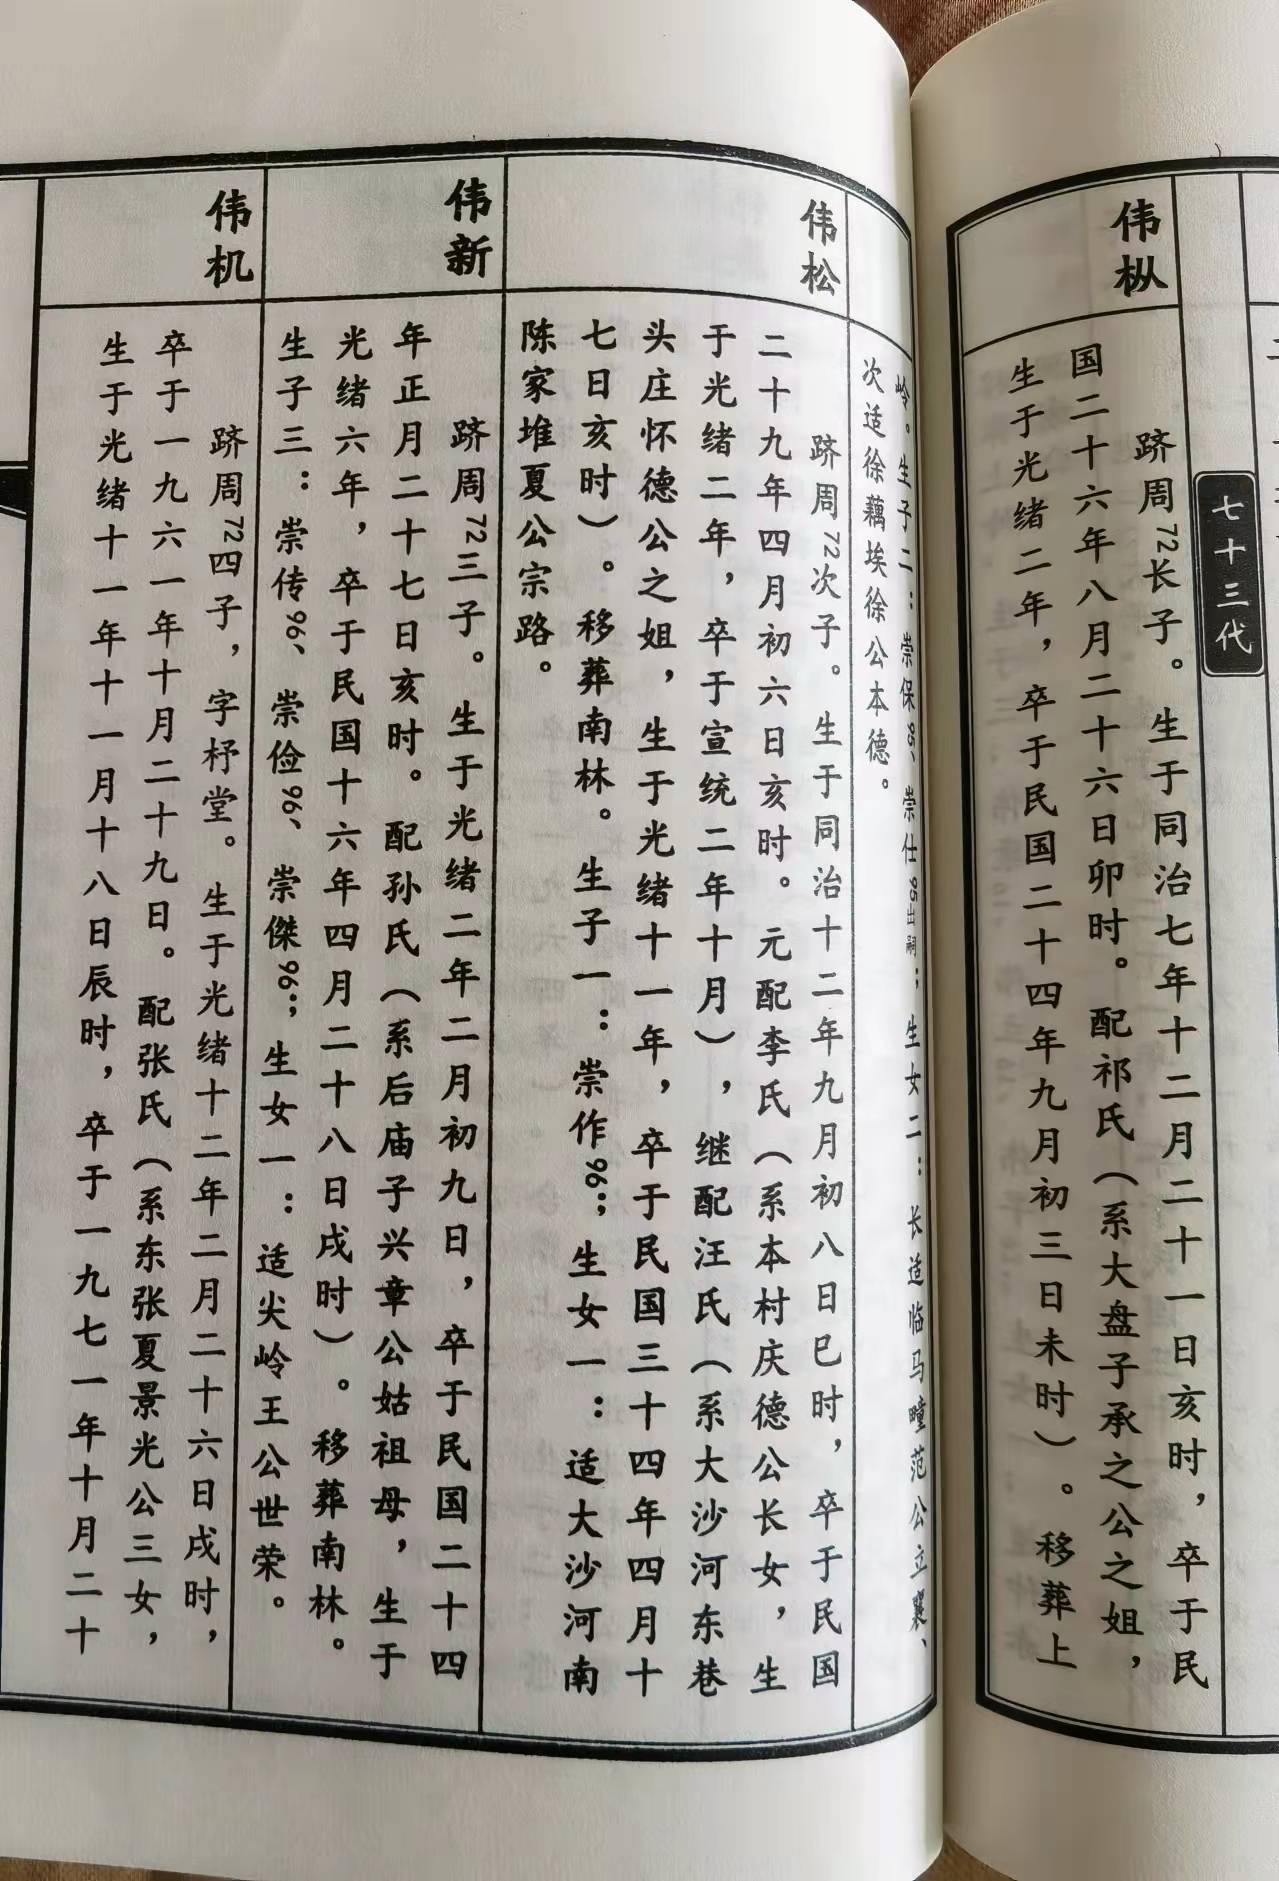 七十三代
伟枞
跻周72长子。生于同治七年十二月二十一日亥时，卒于民
国二十六年八月二十六日卯时。配祁氏（系大盘子承之公之姐，
生于光绪二年，卒于民国二十四年九月初三日未时）。移葬上
岭。生子二：崇保95、崇仕95出嗣；生女二：长适临马疃范公立襄、
次适徐藕埃徐公本德。
伟松
跻周72次子。生于同治十二年九月初八日巳时，卒于民国
二十九年四月初六日亥时。元配李氏（系本村庆德公长女，生
于光绪二年，卒于宣统二年十月），继配汪氏（系大沙河东巷
头庄怀德公之姐，生于光绪十一年，卒于民国三十四年四月十
七日亥时）。移葬南林。生子一：崇作96；生女一：适大沙河南
陈家堆夏公宗路。
伟新
跻周72三子。生于光绪二年二月初九日，卒于民国二十四
年正月二十七日亥时。配孙氏（系后庙子兴章公姑祖母，生于
光绪六年，卒于民国十六年四月二十八日戌时）。移葬南林。
生子三：崇传96、崇俭96、崇傑96；生女一：适尖岭王公世荣。
伟机
跻周72四子，字杼堂。生于光绪十二年二月二十六日戌时，
卒于一九六一年十月二十九日。配张氏（系东张夏景光公三女，
生于光绪十一年十一月十八日辰时，卒于一九七一年十月二十